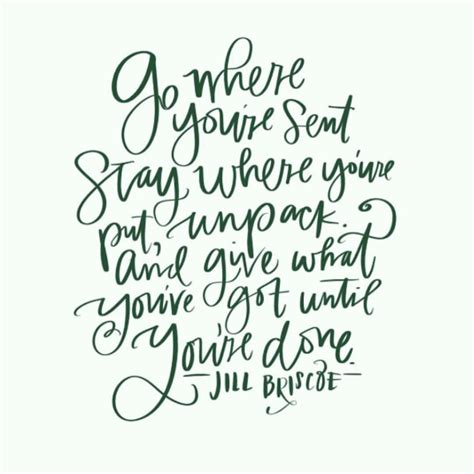 Go where
you're sent
Stay where you're
put, unpack.
and give what
you've got until
you're done.
- JILL BRISCOE -